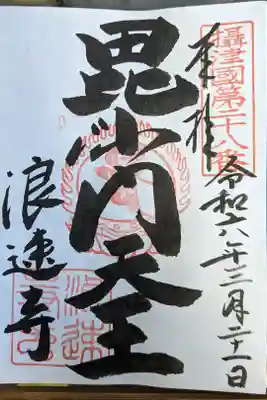 攝津國第二十八番
奉拝
令和六年三月二十一日
毘沙門天王
浪速寺